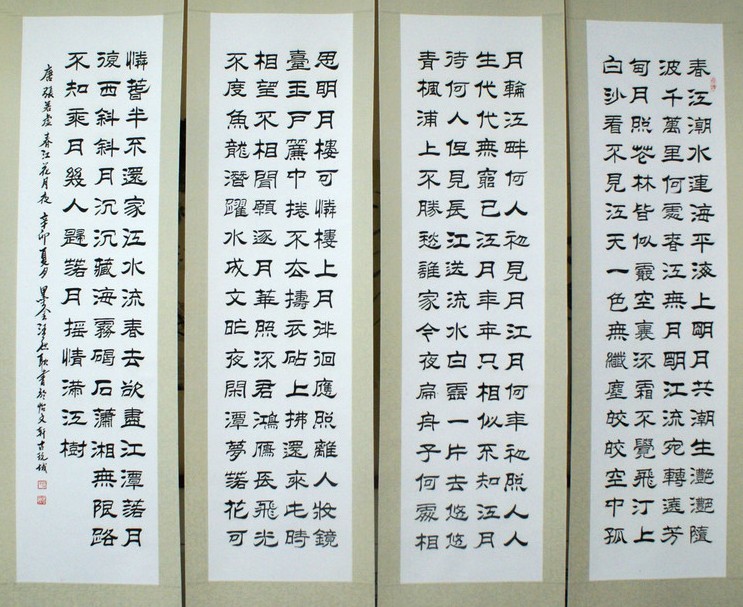 春江潮水連海平海上明月共潮生灧灧隨
波千萬里何處春江無月明江流宛轉遶芳
甸月照花林皆似霰空裏流霜不覺飛汀上
白沙看不見江天一色無纖塵皎皎空中孤
月輪江畔何人初見月江月何年初照人人
生代代無窮已江月年年只相似不知江月
待何人但見長江送流水白雲一片去悠悠
青楓浦上不勝愁誰家今夜扁舟子何處相
思明月樓可憐樓上月徘徊應照離人妝鏡
臺玉戶簾中捲不去擣衣砧上拂還來此時
相望不相聞願逐月華照流君鴻雁長飛光
不度魚龍潛躍水成文昨夜閑潭夢落花可
憐春半不還家江水流春去欲盡江潭落月
復西斜斜月沉沉藏海霧碣石瀟湘無限路
不知乘月幾人歸落月搖情滿江樹
唐張若虛春江花月夜辛卯夏月書於怡文軒